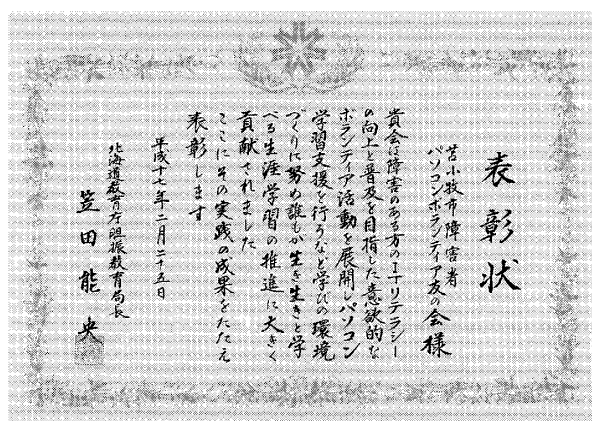 表彰状
苫小牧市障害者
パソコンボランティア友の会様
貴会は障害のある方のITリテラシー
の向上と普及を目指した意欲的な
ボランティア活動を展開しパソコン
学習支援を行うなど学びの環境
づくりに努め誰もが生き生きと学
べる生涯学習の推進に大きく
貢献されました
ここにその実践の成果をたたえ
表彰します
平成十七年二月二十五日
北海道教育庁胆振教育局長
笠田能央